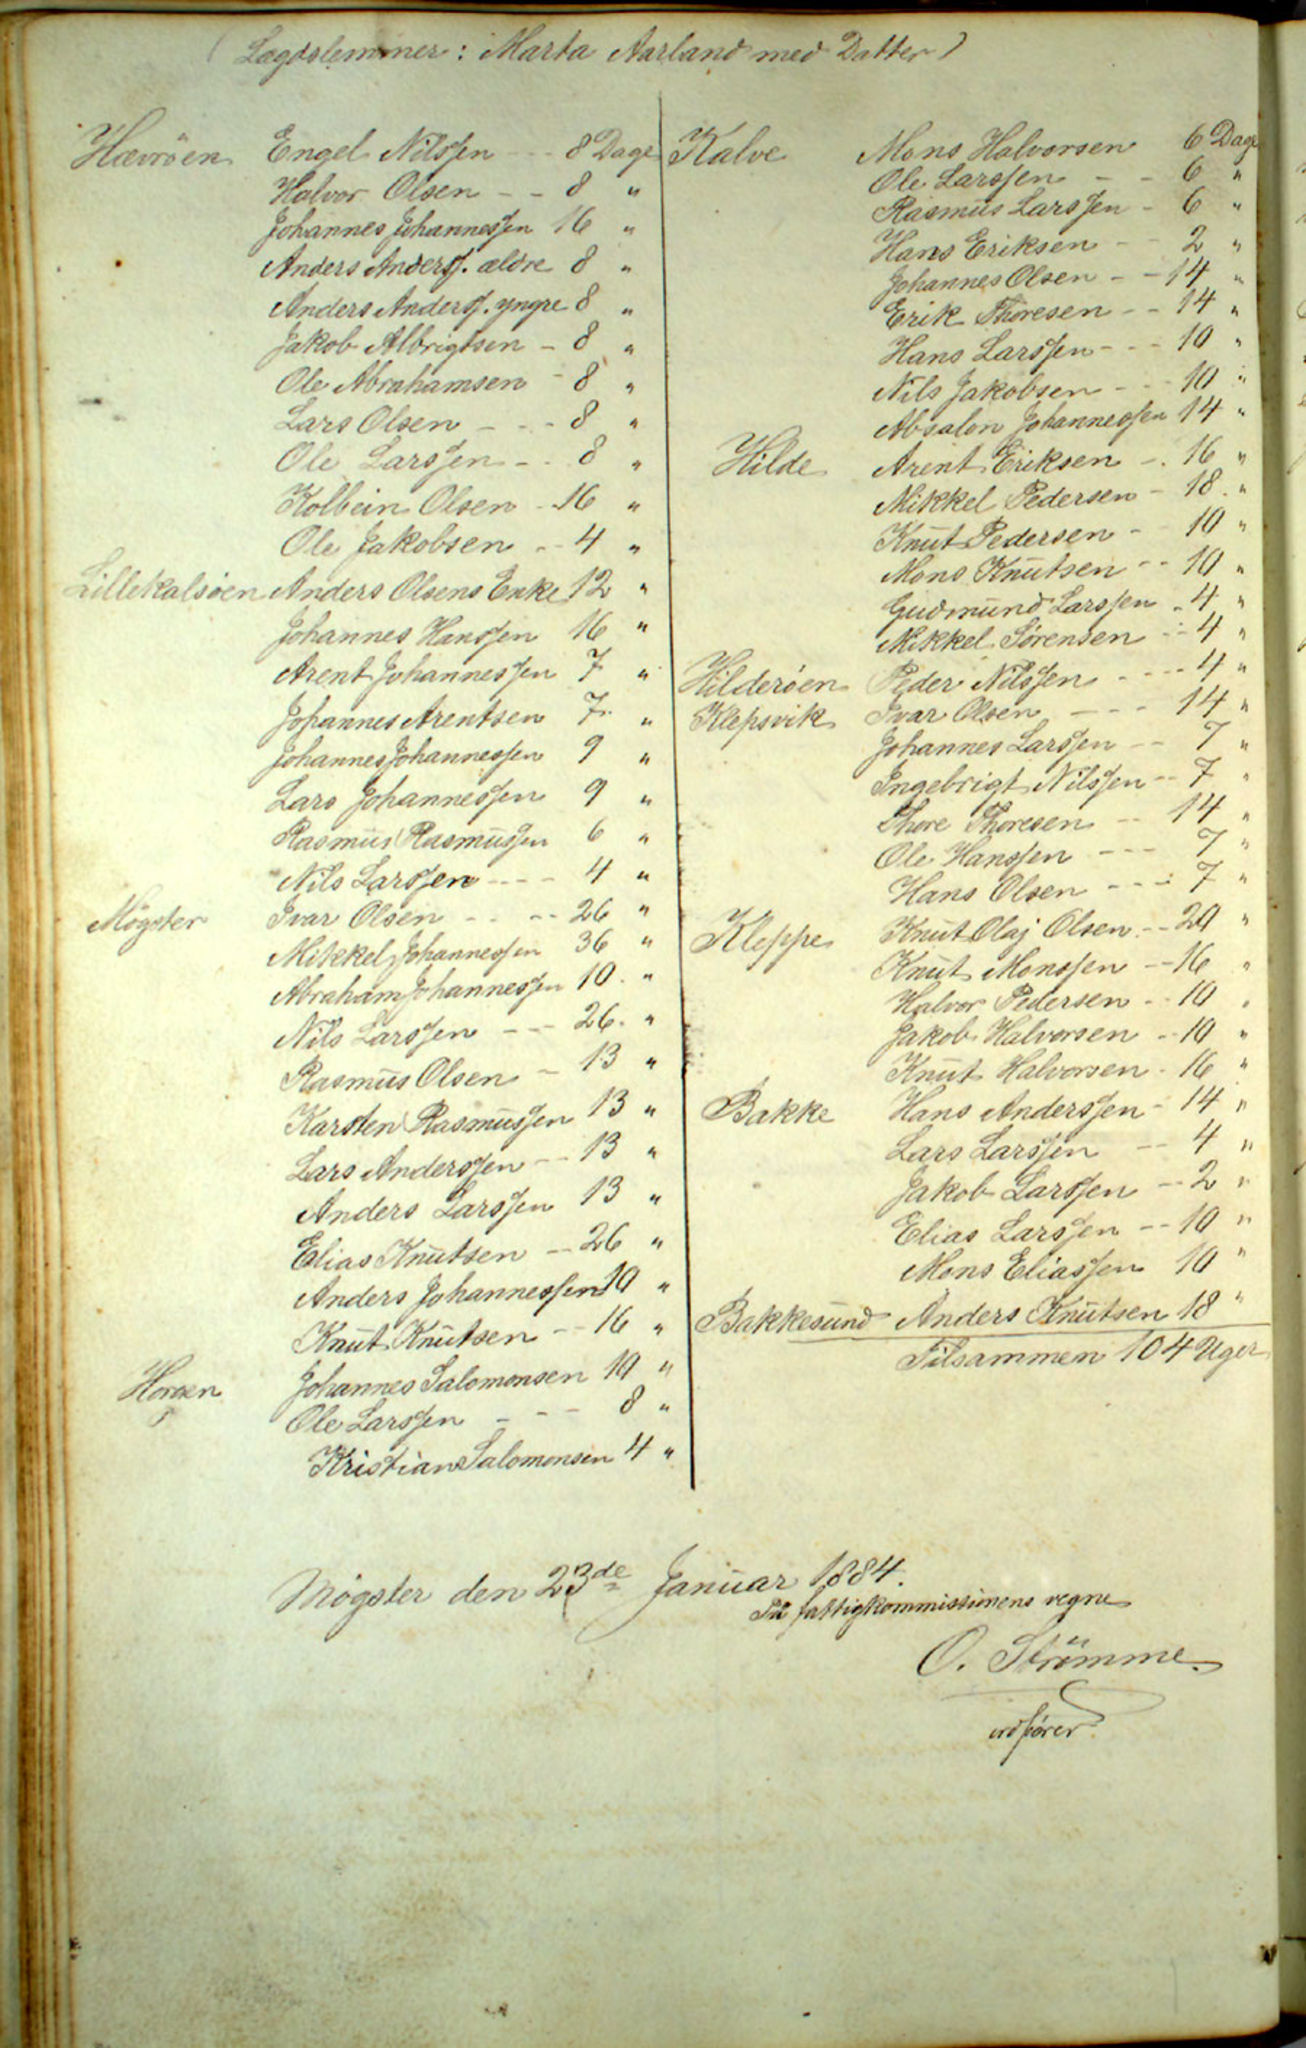 ( Lægdslemmer: Marta Aarland med Datter )
Hævröen Engel Nilssen - - 8 Dage
Halvor Olsen - - 8 "
Johannes Johannessen 16 "
Anders Anderss. ældre 8 "
Anders Anderss. yngre 8 "
Jakob Albrigtsen - 8 "
Ole Abrahamsen - 8 "
Lars Olsen - - - 8 "
Ole Larssen - - 8 "
Kolbein Olsen - 16 "
Ole Jakobsen - - 4 "
Lillekalsöen Anders Olsens Enke 12 "
Johannes Hanssen 16 "
Arent Johannessen 7 "
Johannes Arentsen 7 "
Johannes Johannessen 9 "
Lars Johannessen 9 "
Rasmus Rasmussen 6 "
Nils Larssen - - - 4 "
Mögster Ivar Olsen - - - - 26 "
Mikkel Johannessen 36 "
Abraham Johannessen 10 "
Nils Larssen - - - 26 "
Rasmus Olsen - 13 "
Karsten Rasmussen 13 "
Lars Anderssen - - 13 "
Anders Larssen 13 "
Elias Knutsen - - 26 "
Anders Johannessen 10 "
Knut Knutsen - - 16 "
Horgen Johannes Salomonsen 10 "
Ole Larssen - - - 8 "
Kristian Salomonsen 4 "
Kalve Mons Halvorsen 6 Dage
Ole Larssen - - 6 "
Rasmus Larssen - 6 "
Hans Eriksen - - 2 "
Johannes Olsen - - 14 "
Erik Thoresen - - 14 "
Hans Larssen - - - 10 "
Nils Jakobsen - - - 10 "
Absalon Johannessen 14 "
Hilde Arent Eriksen - . 16 "
Mikkel Pedersen - 18 "
Knut Pedersen - 10 "
Mons Knutsen - - 10 "
Gudmund Larssen - 4 "
Mikkel Sørensen - - 4 "
Hilderöen Peder Nilssen - - - - 4 "
Klepsvik Ivar Olsen - - - 14 "
Johannes Larssen - - 7 "
Ingebrigt Nilssen - - 7 "
Thore Thoresen - - 14 "
Ole Hanssen - - - 7 "
Hans Olsen - - - 7 "
Kleppe Knut Olaj Olsen - - 20 "
Knut Monssen - - 16 "
Halvor Pedersen - - 10 "
Jakob Halvorsen - 10 "
Knut Halvorsen - 16 "
Bakke Hans Anderssen - 14 "
Lars Larssen - - 4 "
Jakob Larssen - - 2 "
Elias Larssen - - 10 "
Mons Eliassen 10 "
Bakkesund Anders Knutsen 18 "
Tilsammen 104 Uger
Mögster den 23de Januar 1884.
På fattigkommissionens vegne
O. Strömme
ordfører.